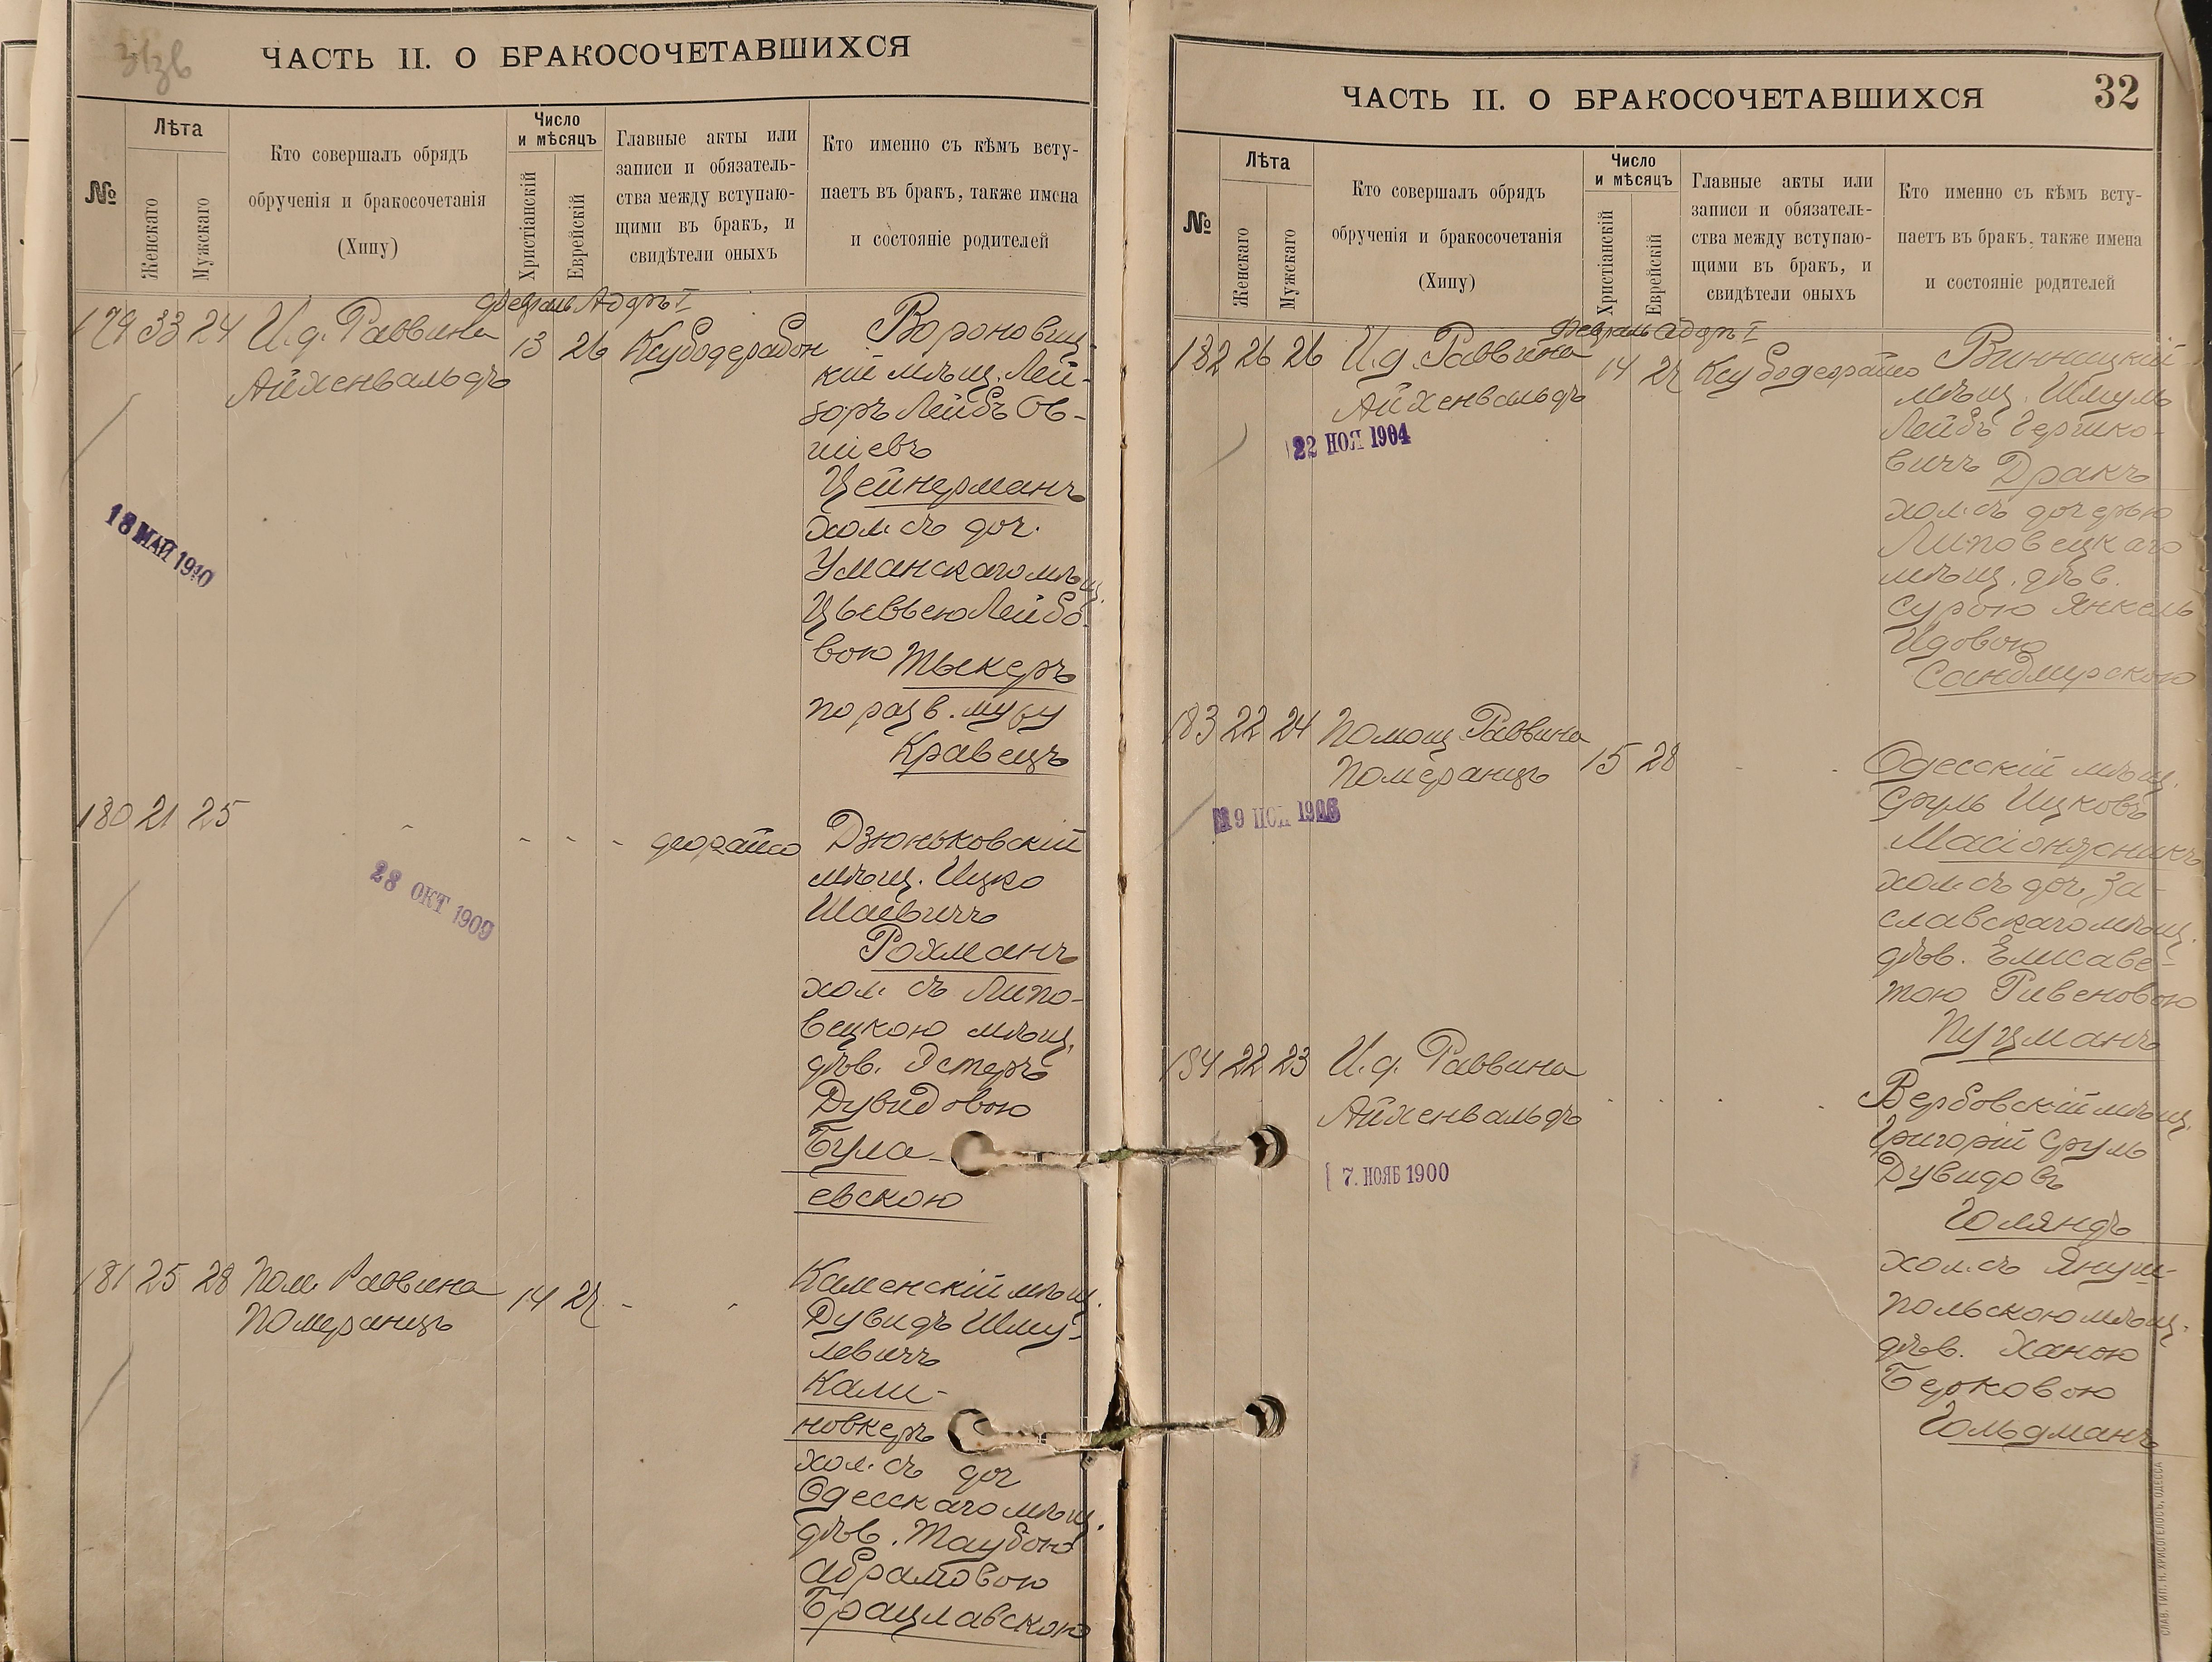 31зв
ЧАСТЬ II. О БРАКОСОЧЕТАВШИХСЯ
№
Лѣта
Женскаго
Мужскаго
Кто совершалъ обрядъ
обрученія и бракосочетанія
(Хипу)
Число
и мѣсяцъ
Христіанскій
Еврейскій
Главные акты или
записи и обязатель-
ства между вступаю-
щими въ бракъ, и
свидѣтели оныхъ
Кто именно съ кѣмъ всту-
паетъ въ бракъ, также имена
и состояніе родителей
Февраль Адаръ I
179 33 24 И.д. Раввина 13 26
Айхенвальдъ
18 МАЙ 1910
Вороновиц-
кій мѣщ. Лей-
зоръ Лейбъ Ов-
шіевъ
Цейнерманъ
хол. съ доч.
Уманскаго мѣщ.
Цьевьею Лейбо-
вою Тыкеръ
по разв. мужу
Кравецъ
180 21 25 - - - - деорайсо
28 ОКТ 1909
Дзюньковскій
мѣщ. Ицко
Шаевичъ
Рохманъ
хол. съ Липо-
вецкою мѣщ.
дѣв. Эстеръ
Дувидовою
Була-
евскою
181 25 28 Пом. Раввина 14 27 - -
Померанцъ
Каменскій мѣщ.
Дувидъ Шму-
левичъ
Кали-
новкеръ
хол. съ доч
Одесскаго мѣщ.
дѣв. Таубою
Абрамовою
Брацлавскою
32
ЧАСТЬ II. О БРАКОСОЧЕТАВШИХСЯ
№
Лѣта
Женскаго
Мужскаго
Кто совершалъ обрядъ
обрученія и бракосочетанія
(Хипу)
Число
и мѣсяцъ
Христіанскій
Еврейскій
Главные акты или
записи и обязатель-
ства между вступаю-
щими въ бракъ, и
свидѣтели оныхъ
Кто именно съ кѣмъ всту-
паетъ въ бракъ, также имена
и состояніе родителей
Февраль Адаръ I
182 26 26 И.д. Раввина 14 27
Айхенвальдъ
22 НОЯ 1904
Винницкій
мѣщ. Шмуль
Лейбъ Гершко-
вичъ Дракъ
хол. съ дочерью
Липовецкаго
мѣщ. дѣв.
Сурою Янкель
Идовою
Сандмирскою
183 22 24 Помощ. Раввина 15 28 - -
Померанцъ
Одесскій мѣщ.
Сруль Ицковъ
хол. съ доч. За-
славскаго мѣщ.
дѣв. Елисаве-
тою Рувеновою
Пуцманъ
184 22 23 И.д. Раввина - - - -
Айхенвальдъ
7. НОЯБ 1900
Вербовскій мѣщ.
Григорій Сруль
Дувидовъ
Голяндъ
хол. съ Януш-
польскою мѣщ.
дѣв. Ханою
Берковою
Гольдманъ
СЛАВ. ТИП. Н. ХРИСОГЕЛОСЪ, ОДЕССА